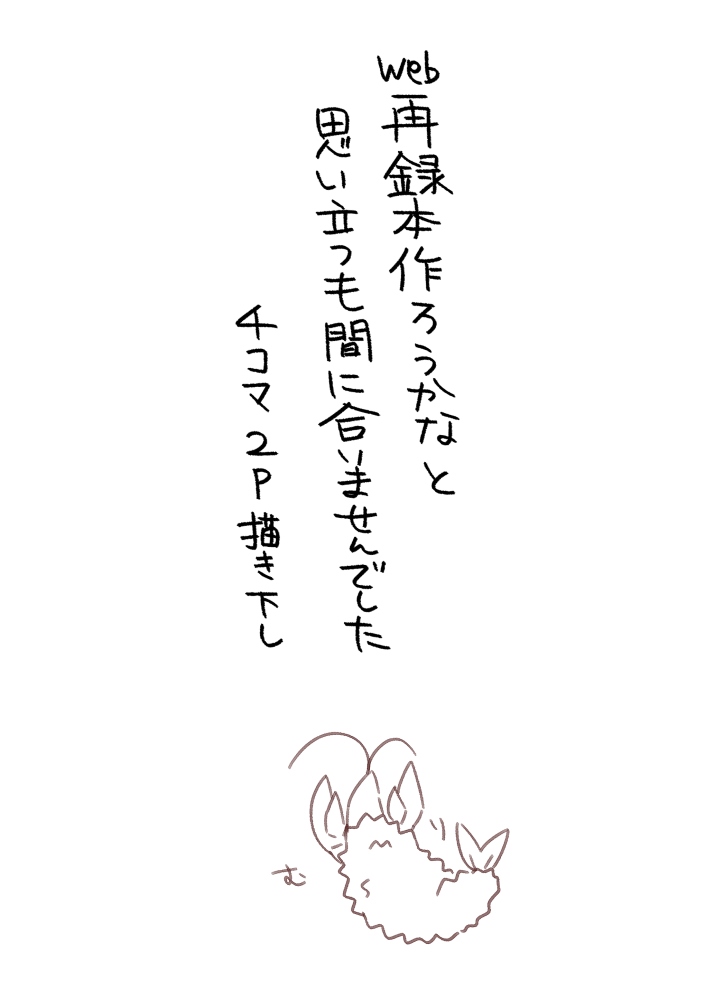 web再録本作ろうかなと
思い立つも間に合いませんでした
4コマ2P描き下し
む